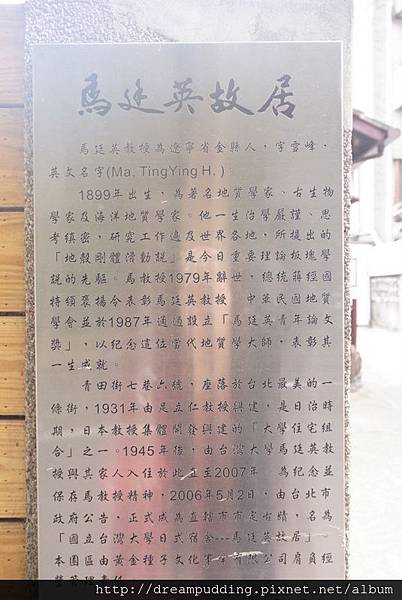 馬廷英故居
馬廷英教授為遼寧省金縣人，字雪峰，
英文名字(Ma, TingYing H. )
1899年出生，為著名地質學家、古生物
學家及海洋地質學家。他一生治學嚴謹、思
考縝密，研究工作遍及世界各地，所提出的
「地殼剛體滑動說」是今日重要理論板塊學
說的先驅。馬教授1979年辭世，總統蔣經國
特頒褒揚令表彰馬廷英教授　中華民國地質
學會並於1987年通過設立「馬廷英青年論文
獎」，以紀念這位當代地質學大師，表彰其
一生成就。
青田街七巷六號，座落於台北最美的一
條街，1931年由足立仁教授興建，是日治時
期，日本教授集體開發興建的「大學住宅組
合」之一。1945年後，由台灣大學馬廷英教
授與其家人入住於此直至2007年　為紀念並
保存馬教授精神，2006年5月2日，由台北市
政府公告，正式成為直轄市市定古蹟，名為
「國立台灣大學日式宿舍---馬廷英故居」。
本園區由黃金種子文化事業有限公司肩負經
http://dreampudding.pixnet.net/album